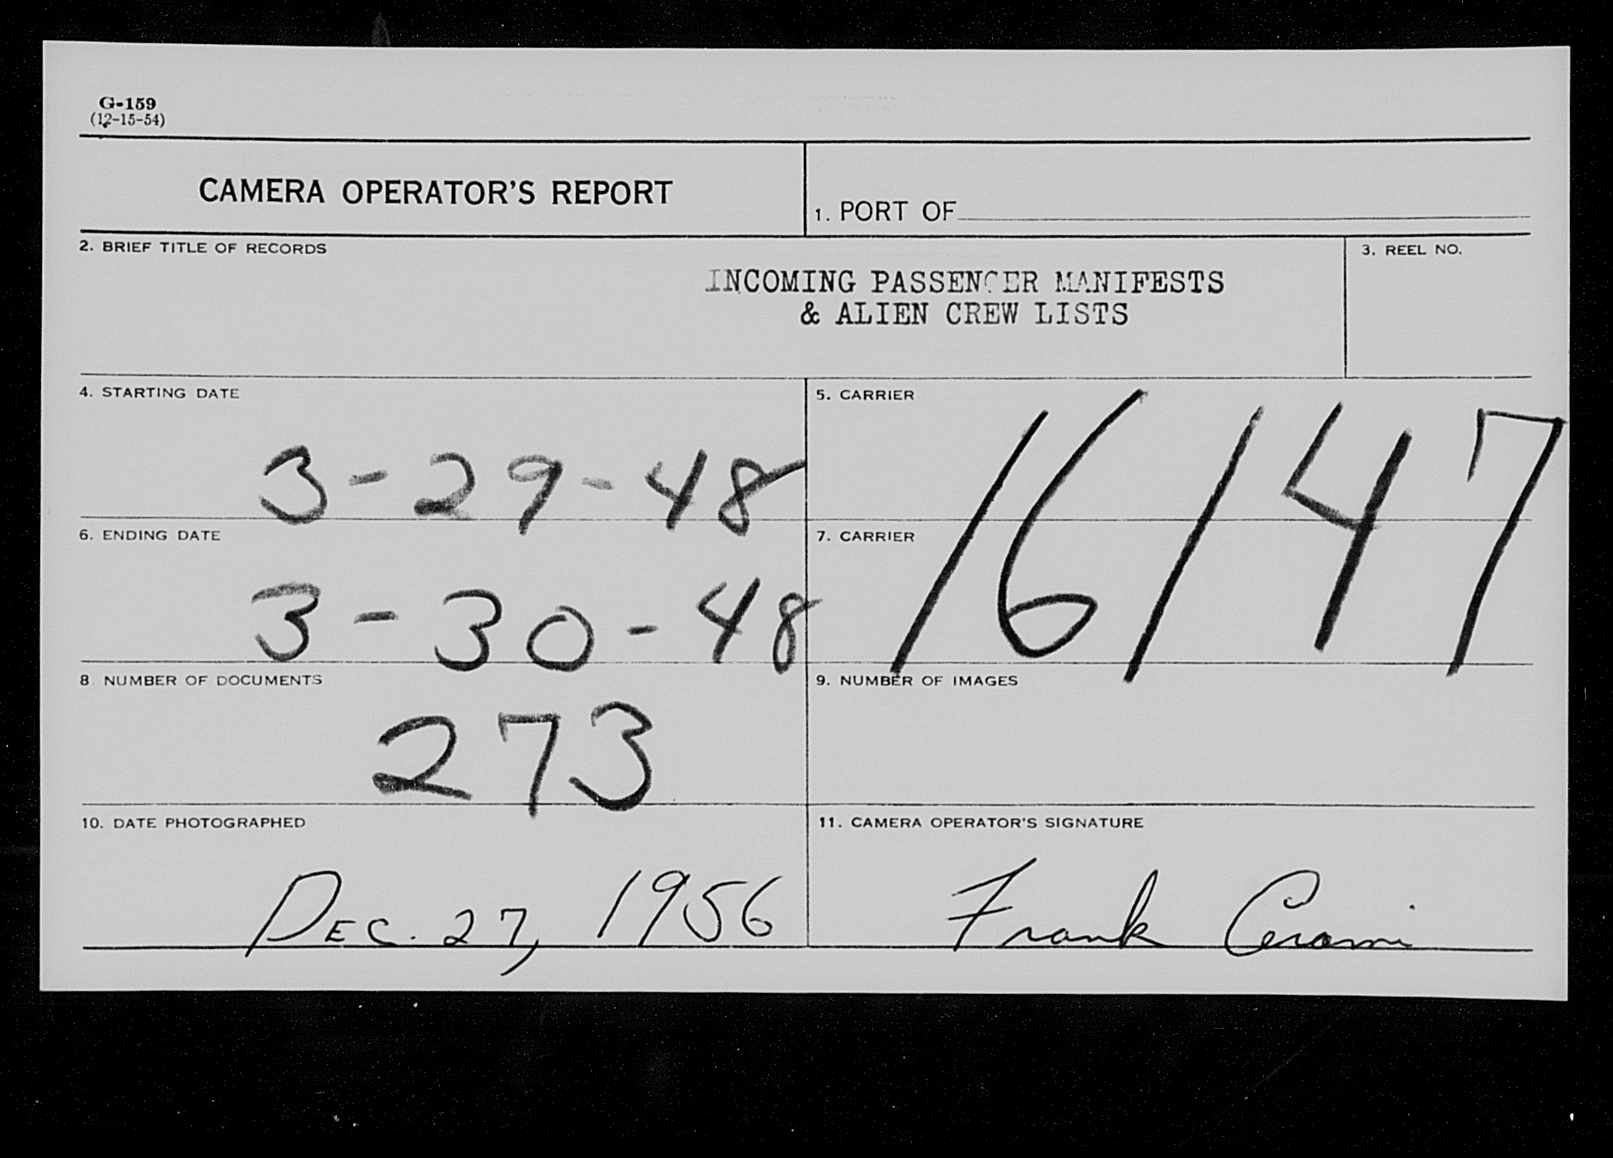 G-159
(12-15-54)
CAMERA OPERATOR'S REPORT
1. PORT OF
2. BRIEF TITLE OF RECORDS
INCOMING PASSENGER MANIFESTS
& ALIEN CREW LISTS
3. REEL NO.
4. STARTING DATE
3-29-48
5. CARRIER
16147
6. ENDING DATE
3-30-48
7. CARRIER
8. NUMBER OF DOCUMENTS
273
9. NUMBER OF IMAGES
10. DATE PHOTOGRAPHED
DEC. 27, 1956
11. CAMERA OPERATOR'S SIGNATURE
Frank Cerami